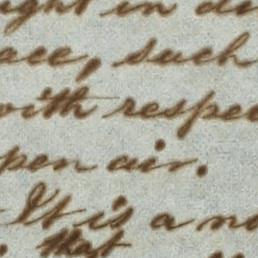 ight in
ace, such
with respec
pen air.
It is a
that